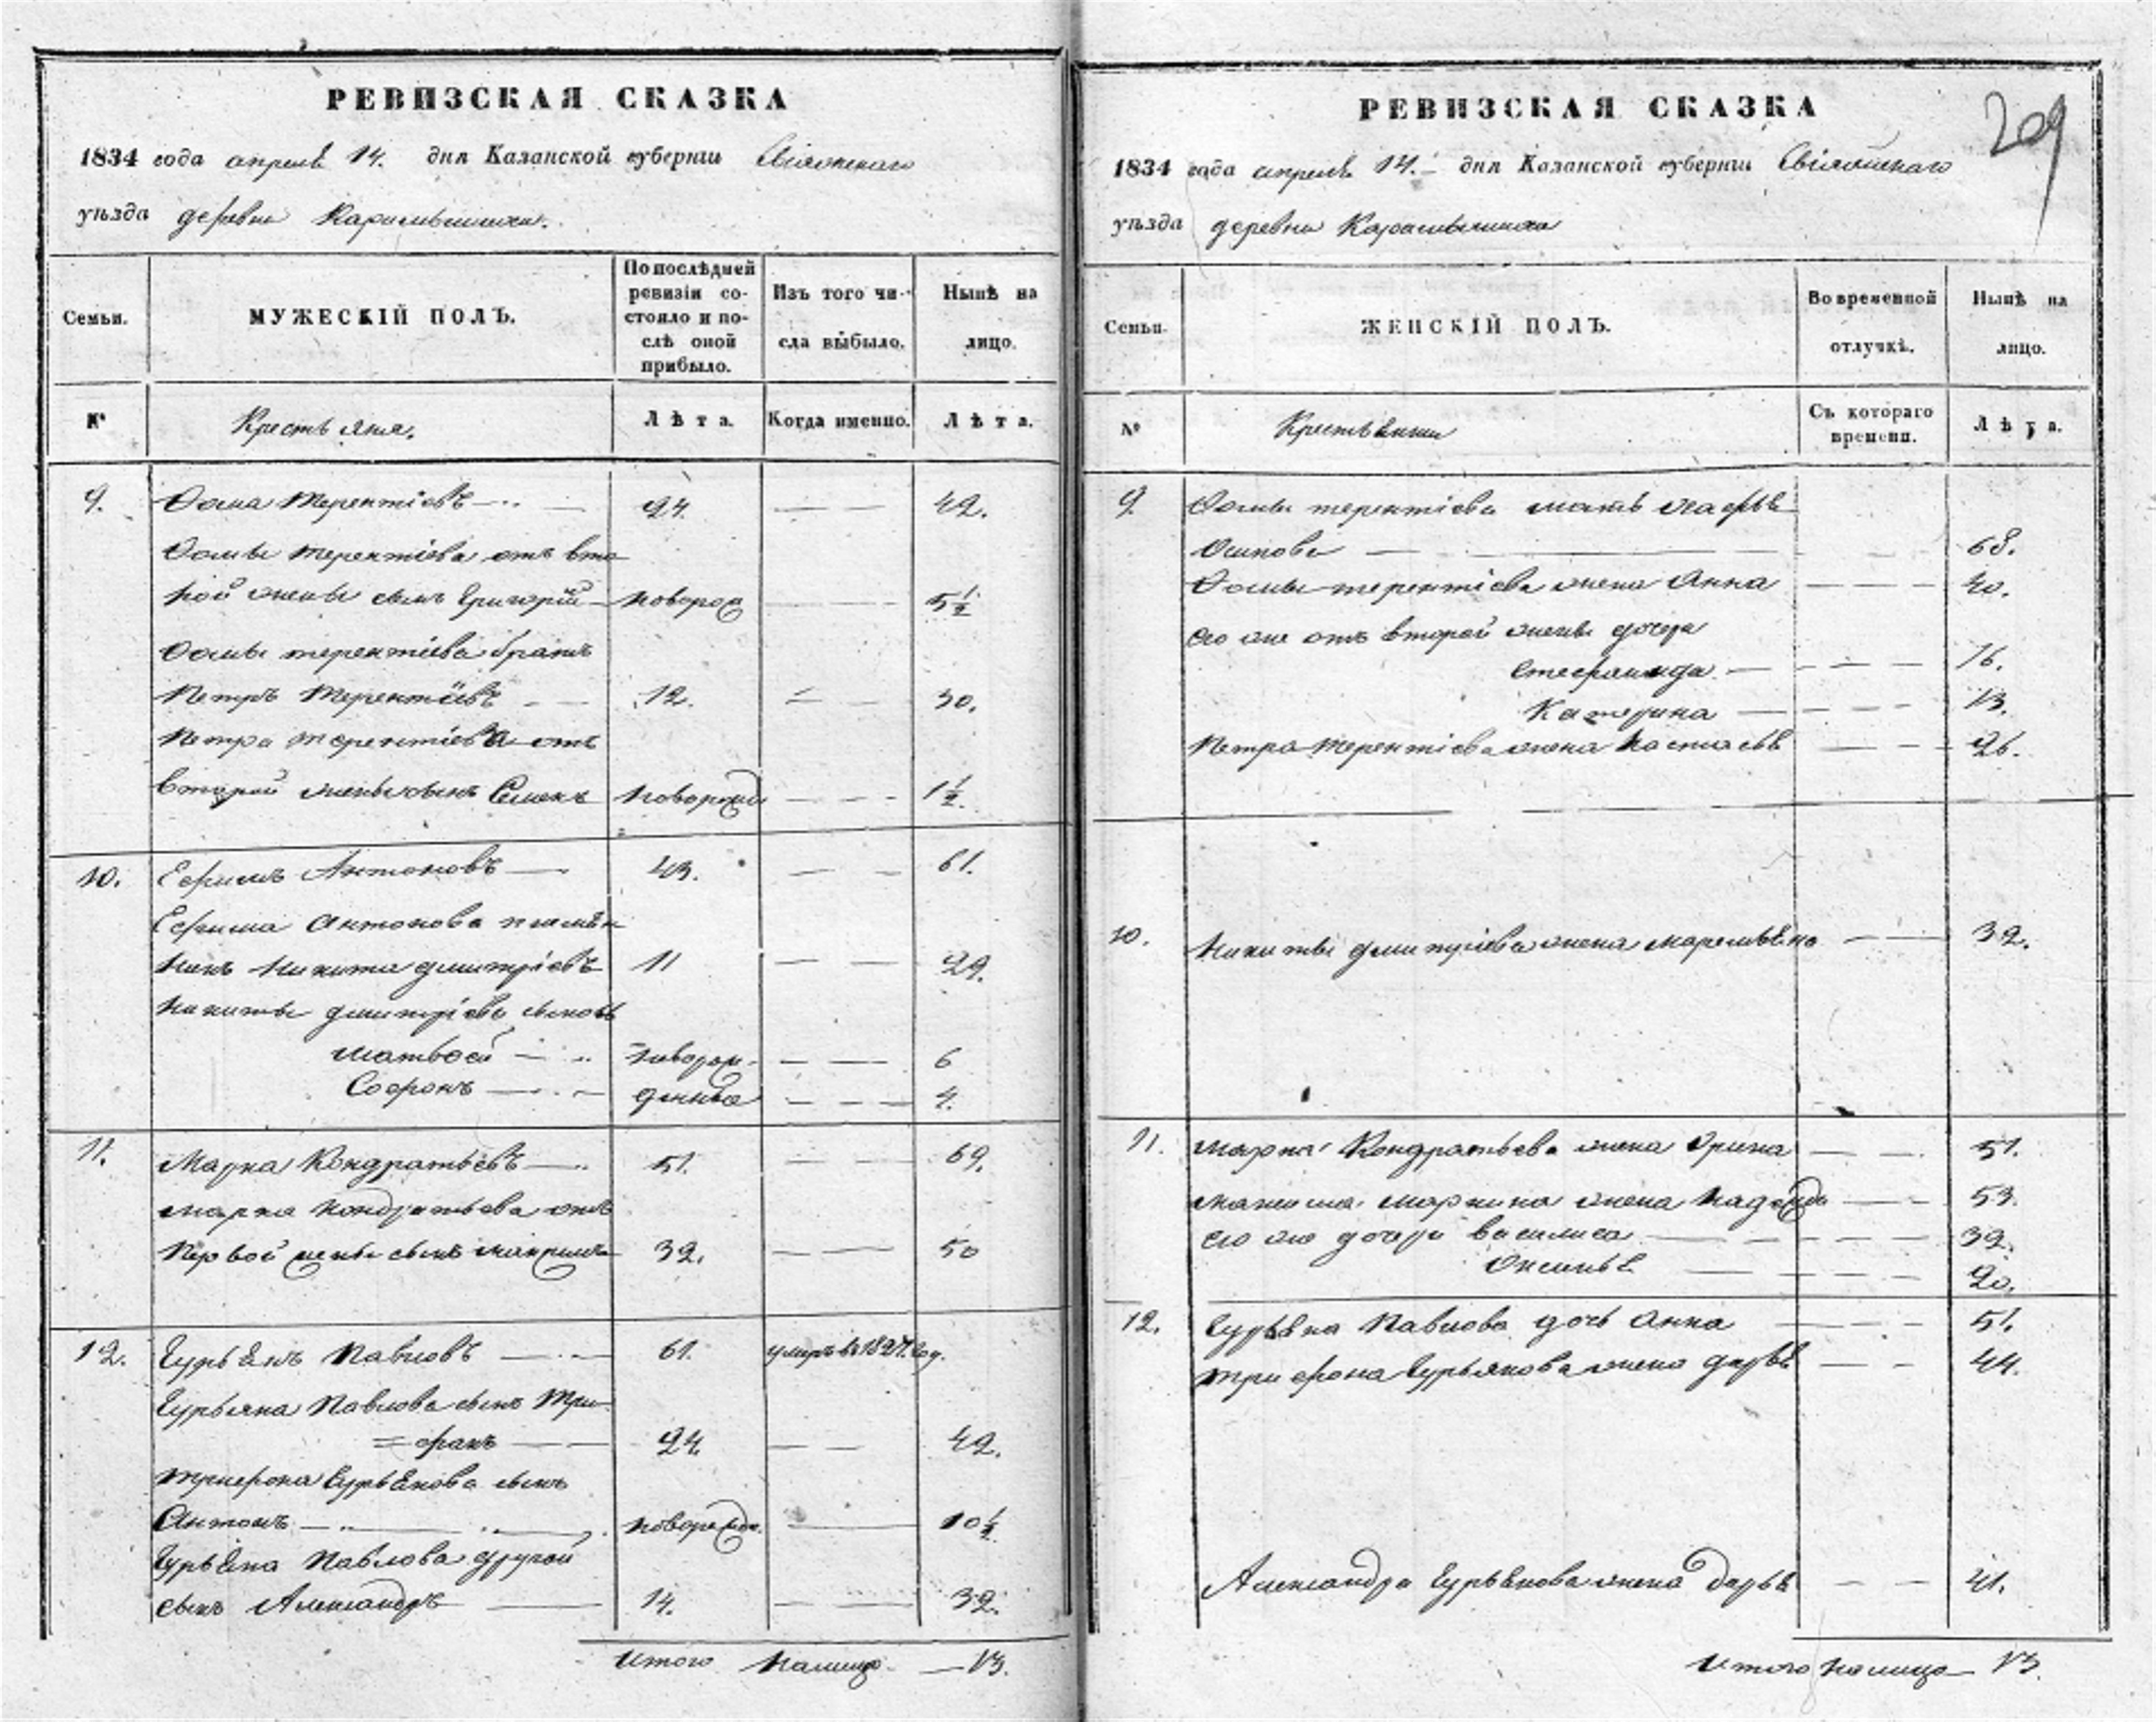 РЕВИЗСКАЯ СКАЗКА
1834 года апреля 14. дня Казанской губернии Свіяжскаго
уѣзда деревни
Семьи.
МУЖЕСКІЙ ПОЛЪ.
По послѣдней
ревизіи со-
стояло и по-
слѣ оной
прибыло.
Изъ того чи-
сла выбыло.
Нынѣ на
лицо.
№
Крестьяня.
Лѣта.
Когда именно.
Лѣта.
9. Фома Терентіевъ 24. 42.
Фомы Терентіева отъ вто
рой жены сынъ Григорій новорож 5 1/2
Фомы терентіева братъ
Петръ Терентіевъ 12. 30.
Петра терентіева отъ
второй жены сынъ Семенъ новорожд 1 1/2.
10. Ефимъ Антоновъ 43. 61.
Ефима Антонова племян
никъ Никита дмитріевъ 11 29.
Никиты дмитріева сыновья
матвей новорож- 6
Софронъ денные 4.
11. Марка Кондратьевъ 51. 69.
марка кондратьева отъ
первой жены сынъ 32. 50
12. Гурьянъ Павловъ 61. умеръ въ 1827. год.
Гурьяна Павлова сынъ Три
=фонъ 24. 42.
трифона Гурьянова сынъ
Антонъ новорожд. 10 1/2
Гурьяна Павлова другой
сынъ Александръ 14. 32.
итого налицо 13.
РЕВИЗСКАЯ СКАЗКА
209
1834 года апреля 14. дня Казанской губерніи Свіяжскаго
уѣзда деревни
Семьи.
ЖЕНСКІЙ ПОЛЪ.
Во временной
отлучкѣ.
Нынѣ на
лицо.
№
Крестьянки
Съ котораго
времени.
Лѣта.
9. Фомы терентіева мать
Осипова 68.
Фомы терентіева жена Анна 40.
его же отъ второй жены дочери
Степанида 16.
Катерина 13.
Петра Терентіева жена Настасья 26.
10. Никиты дмитріева жена 32.
11. марка Кондратьева жена Орина 51.
маркина жена 53.
его же дочери василиса 32.
Оксинья 20.
12. Гурьяна Павлова дочь Анна 51.
трифона Гурьянова жена дарья 44.
Александра Гурьянова жена Дарья 41.
итого налицо 13.